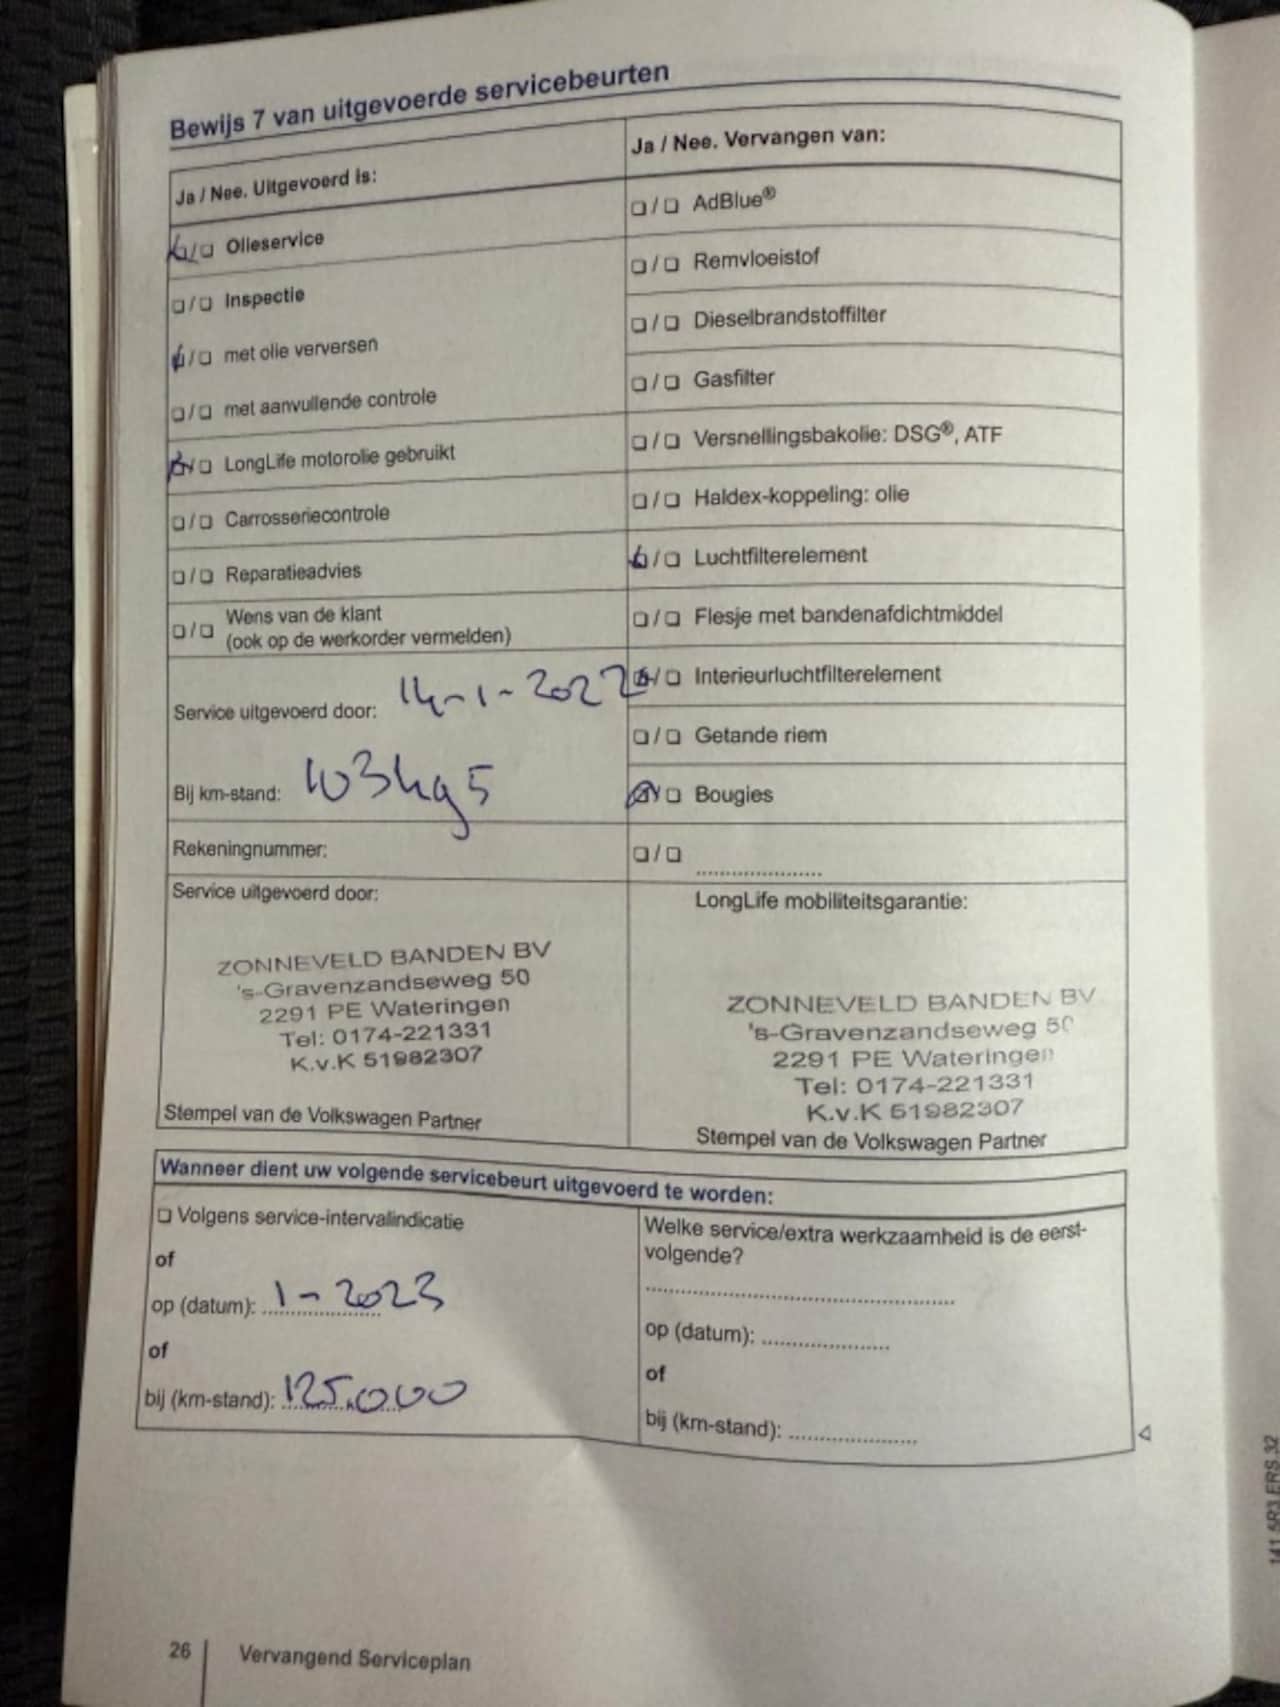 Bewijs 7 van uitgevoerde servicebeurten
Ja / Nee. Uitgevoerd is:
❏/❏ Olieservice
❏/❏ Inspectie
❏/❏ met olie verversen
❏/❏ met aanvullende controle
❏/❏ LongLife motorolie gebruikt
❏/❏ Carrosseriecontrole
❏/❏ Reparatieadvies
❏/❏ Wens van de klant
(ook op de werkorder vermelden)
Service uitgevoerd door: 14-1-2022
Bij km-stand: 103495
Rekeningnummer:
Service uitgevoerd door:
ZONNEVELD BANDEN BV
's-Gravenzandseweg 50
2291 PE Wateringen
Tel: 0174-221331
K.v.K 51982307
Stempel van de Volkswagen Partner
Ja / Nee. Vervangen van:
❏/❏ AdBlue®
❏/❏ Remvloeistof
❏/❏ Dieselbrandstoffilter
❏/❏ Gasfilter
❏/❏ Versnellingsbakolie: DSG®, ATF
❏/❏ Haldex-koppeling: olie
❏/❏ Luchtfilterelement
❏/❏ Flesje met bandenafdichtmiddel
❏/❏ Interieurluchtfilterelement
❏/❏ Getande riem
❏/❏ Bougies
❏/❏ .....................
LongLife mobiliteitsgarantie:
ZONNEVELD BANDEN BV
's-Gravenzandseweg 50
2291 PE Wateringen
Tel: 0174-221331
K.v.K 51982307
Stempel van de Volkswagen Partner
Wanneer dient uw volgende servicebeurt uitgevoerd te worden:
❏ Volgens service-intervalindicatie
of
op (datum): 1-2023
of
bij (km-stand): 125.000
Welke service/extra werkzaamheid is de eerst-
volgende?
op (datum): .....................
of
bij (km-stand): .....................
26 Vervangend Serviceplan